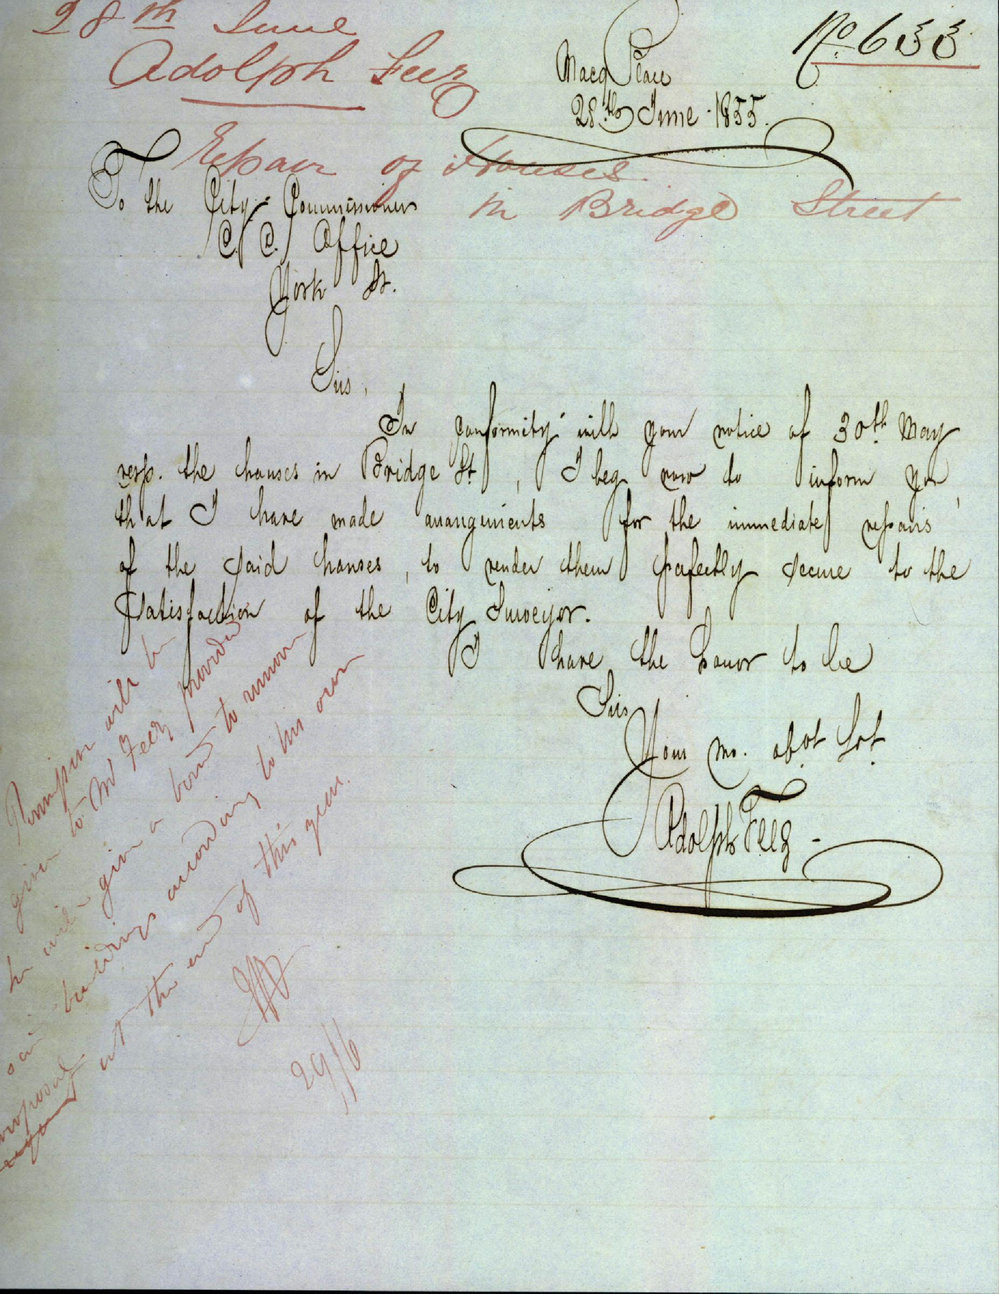 28th June
Adolph Feez
No. 633
Macq Place
28th June 1855.
Repair of Houses
in Bridge Street
To the City Commissioner
C. C. Office
York St.
Sir,
In conformity with your notice of 30th May
resp. the houses in Bridge St, I beg now to inform you,
that I have made arrangements for the immediate repairs
of the said houses, to render them perfectly secure to the
satisfaction of the City Surveyor.
I have the honor to be
Sir
Your mo. obdt Svt
Adolph Feez
Permission will be
given to Mr Feez provided
he will give a bond to remove
said buildings according to his own
proposal at the end of this year.
29/6